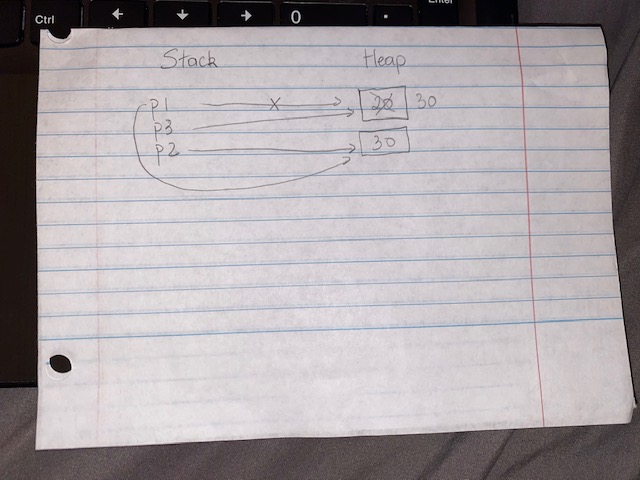 Ctrl ← ↓ → 0 . Enter
Stack Heap
p1 20 30
p3
p2 30